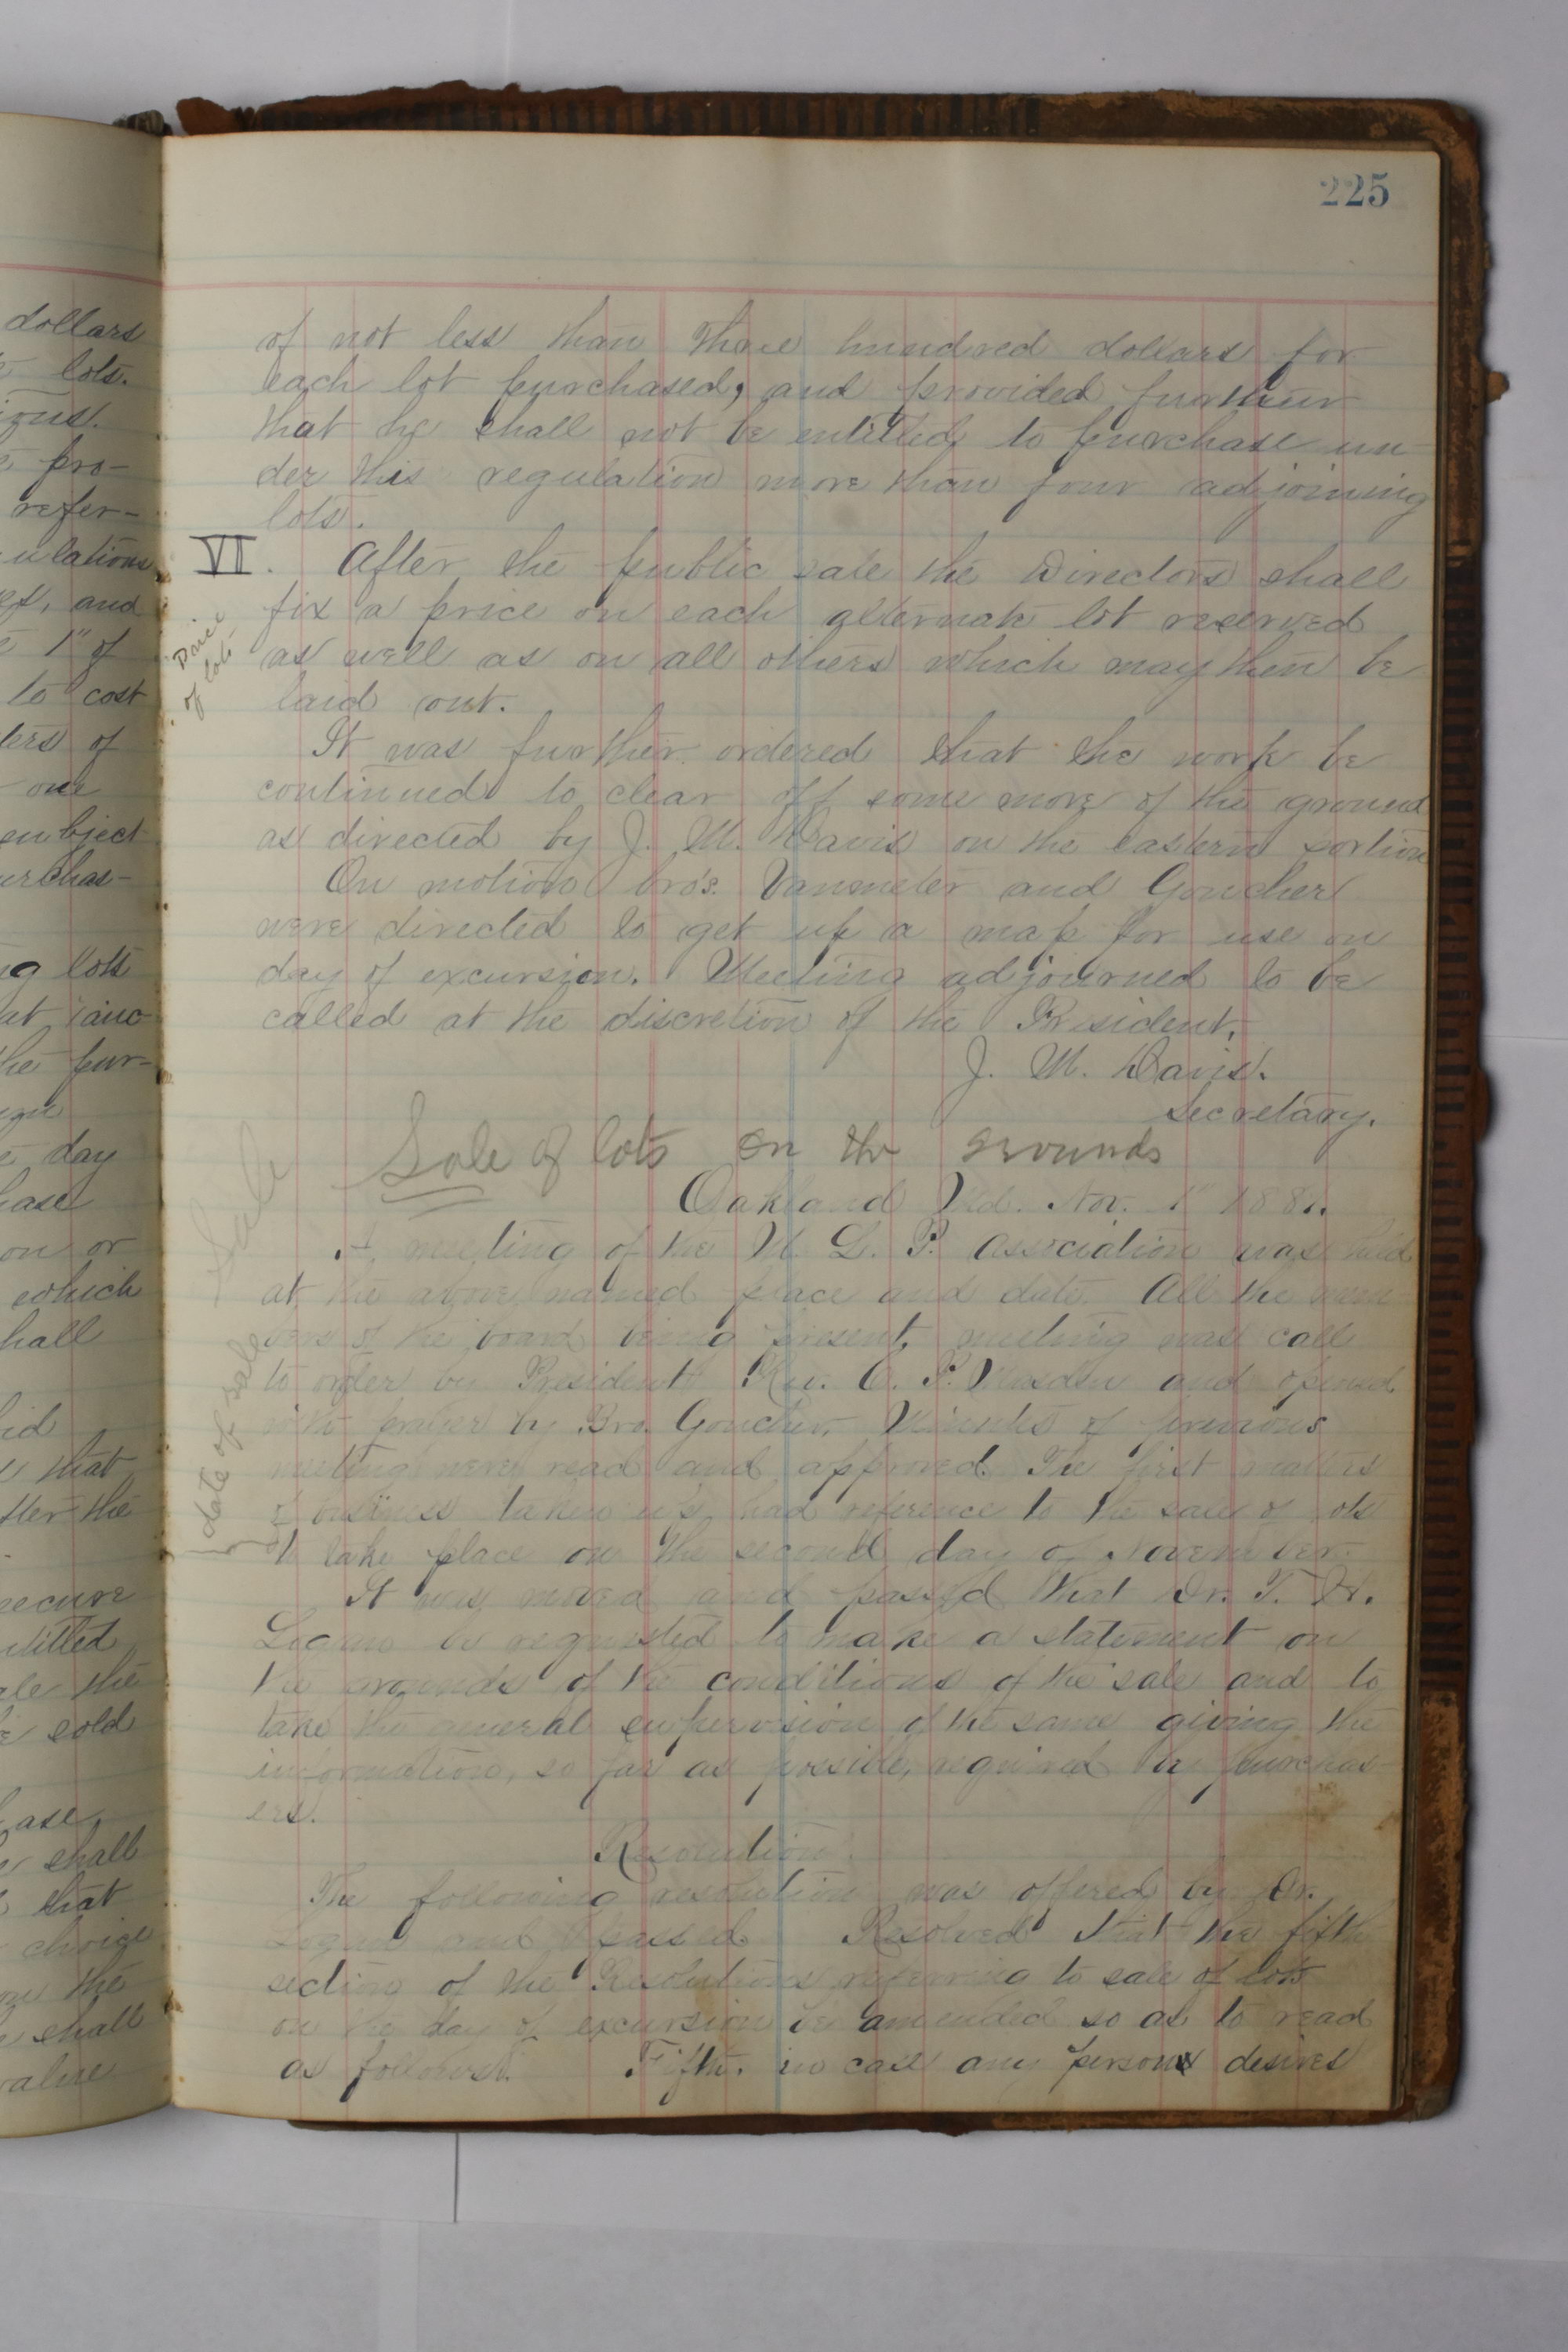 225
dollars
lots.
pro-
refer-
ulations
and
1" of
to cost
of
one
subject
purchas-
lots
at auc-
the pur-
day
on or
which
hall
that
after the
secure
ntitled
the
sold
shall
that
choice
the
shall
value
of not less than Three hundred dollars for
each lot purchased, and provided further
that he shall not be entitled to purchase un
der this regulation more than four adjoining
lots.
VI. After the public sale the Directors shall
fix a price on each alternate lot reserved
as well as on all others which may then be
laid out.
Price
of lots
It was further ordered that the work be
continued to clear off some more of the ground
as directed by J. M. Davis on the eastern portion
On motion bro's. Vanmeter and Goucher
were directed to get up a map for use on
day of excursion. Meeting adjourned to be
called at the discretion of the President.
J. M. Davis.
Secretary.
Sale of lots on the grounds
Sale
Oakland Md. Nov. 1" 1881.
A meeting of the M. L. P. Association was held
at the above named place and date. All the mem
bers of the board being present, meeting was call
to order by President Rev. C. P. Masden and opened
with prayer by Bro. Goucher. Minutes of previous
meeting were read and approved. The first matters
of business taken up had reference to the sale of lots
to take place on the second day of November.
date of sale
It was moved and passed that Dr. T. H.
Logan be requested to make a statement on
the grounds of the conditions of the sale and to
take the general supervision of the same giving the
information, so far as possible, required by purchas-
ers.
Resolution.
The following resolution was offered by Dr.
Logan and passed Resolved that the fifth
section of the Resolutions referring to sale of lots
on the day of excursion be amended so as to read
as follows. Fifth. in case any person desires